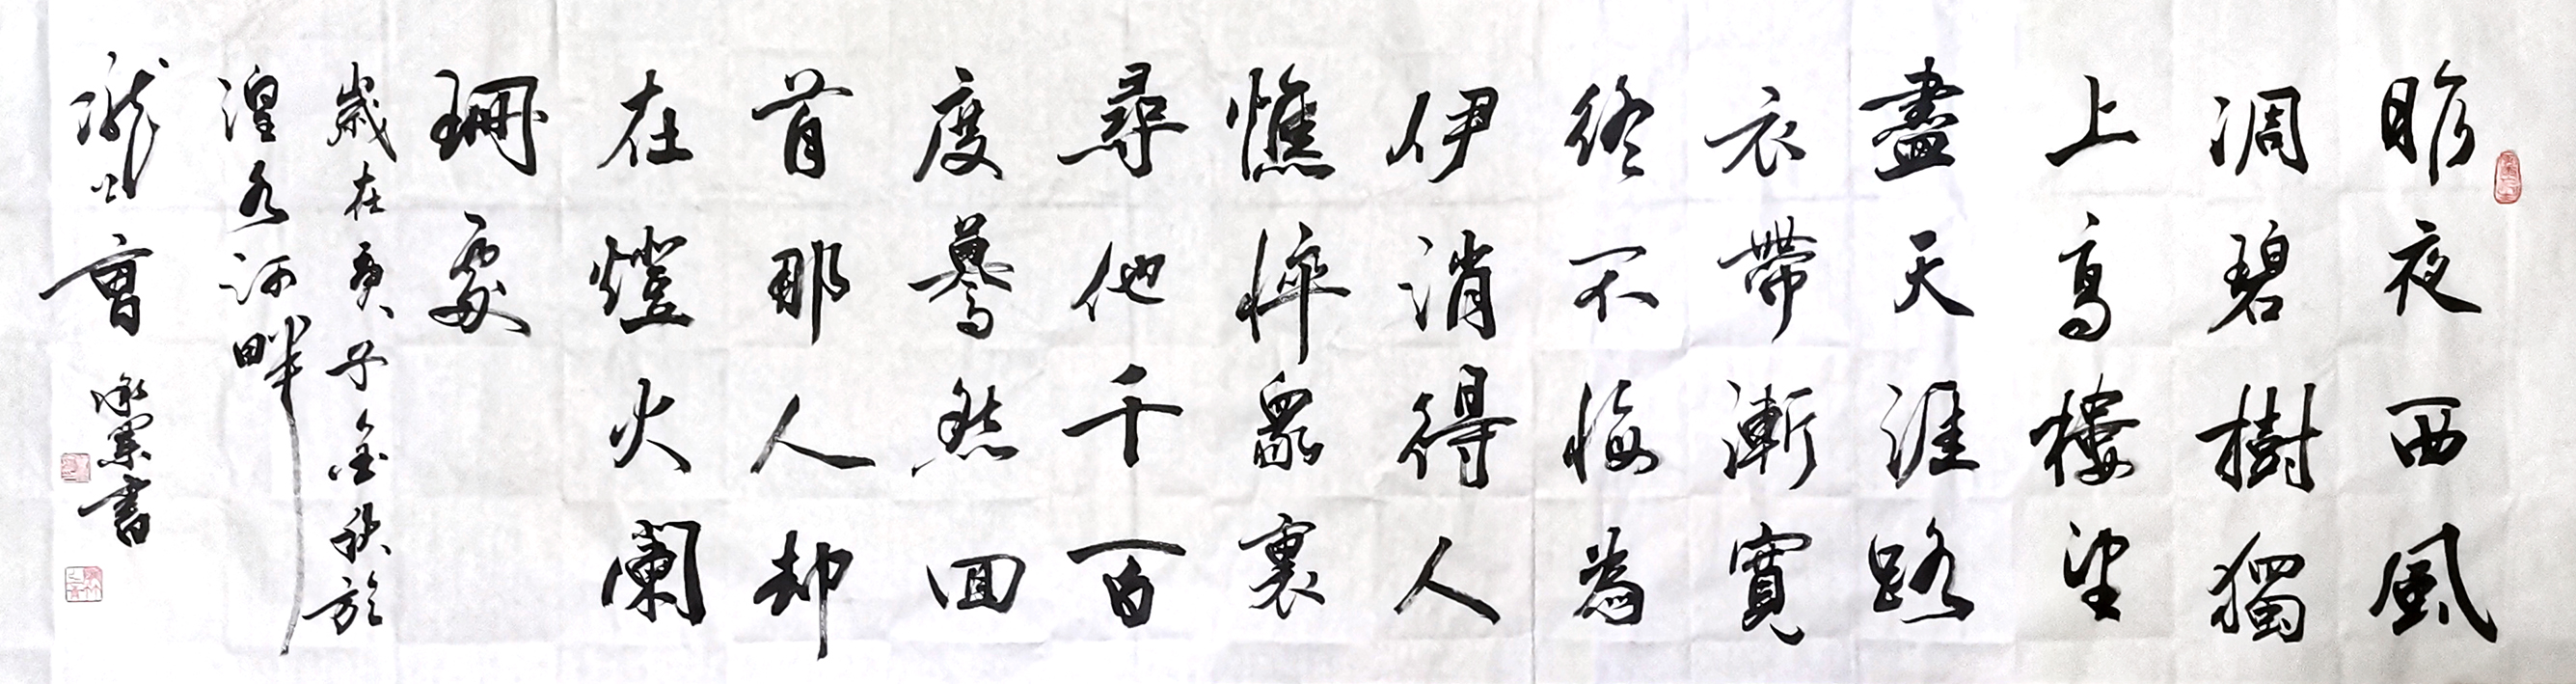 昨夜西風
凋碧樹獨
上高樓望
盡天涯路
衣帶漸寬
終不悔為
伊消得人
憔悴眾裏
尋他千百
度驀然回
首那人却
在燈火闌
珊處
歲在庚子金秋於
湟水河畔
曹書